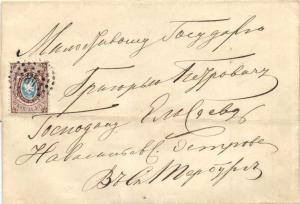 Милостивому Государю
Григорью Петровичу
Господину Елисееву
На Васильев. Острове
Въ С. Петербургъ